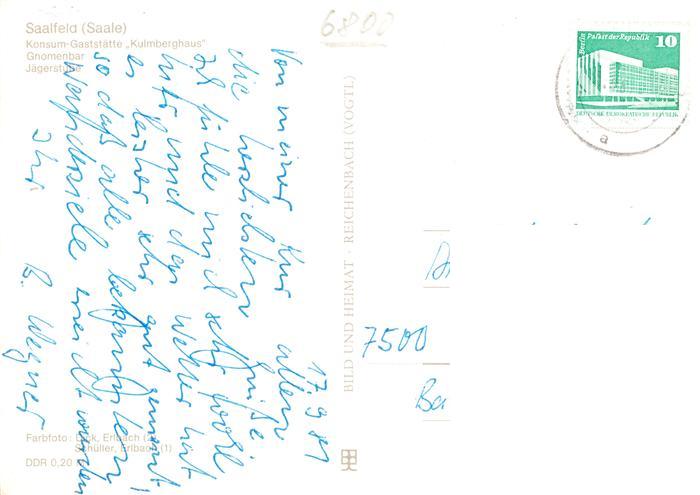 Saalfeld (Saale)
Konsum-Gaststätte „Kulmberghaus"
Gnomenbar
Jägerstube
6800
Berlin Palast der Republik
10
DEUTSCHE DEMOKRATISCHE REPUBLIK
a
17.9.81
Von meiner Kur allen
die herzlichsten Grüße.
Ich fühle mich sehr wohl
hier und das Wetter hat
es bisher sehr gut gemeint,
so daß alle bekannten
Wanderziele erreicht werden
Ihr
B. Wegner
BILD UND HEIMAT REICHENBACH (VOGTL)
7500
Farbfoto: Erlbach
Schüller, Erlbach (1)
DDR 0,20